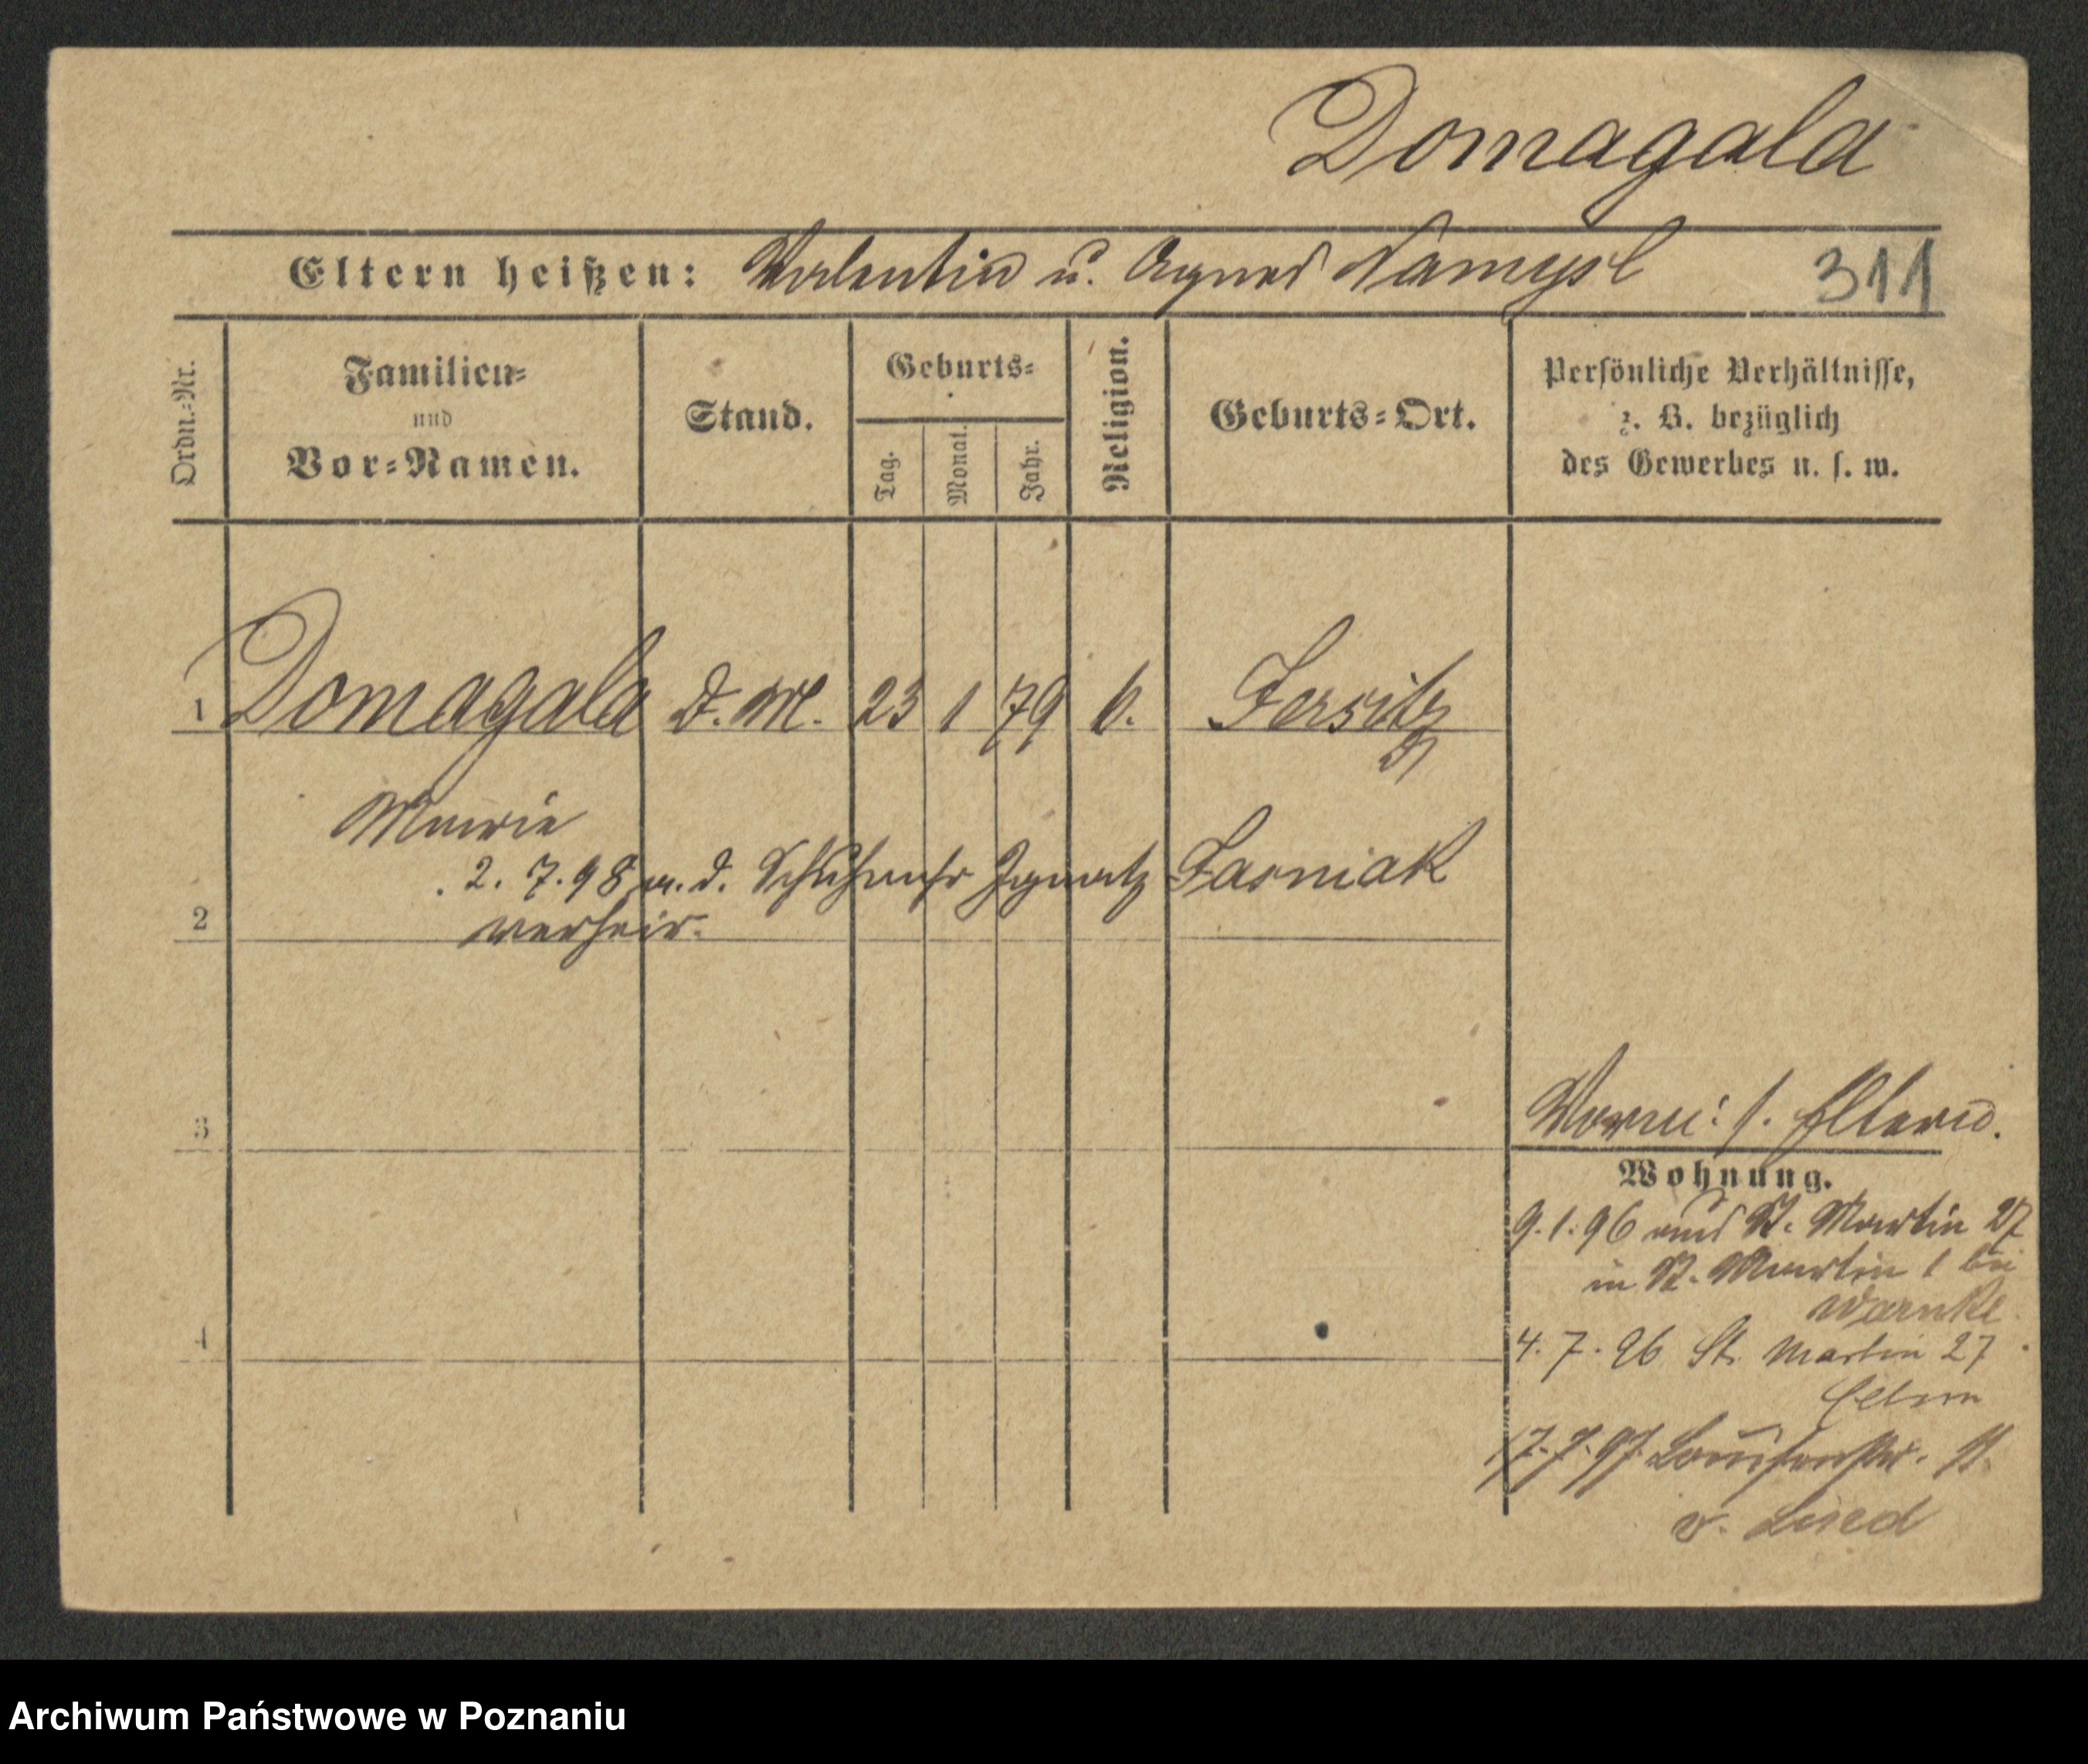 Domagala
Eltern heißen: Valentin u. Agnes Namysl 311
Ordn.-Nr.
Familien-
und
Vor-Namen.
Stand.
Geburts-
Tag.
Monat.
Jahr.
Religion.
Geburts-Ort.
Persönliche Verhältnisse,
z. B. bezüglich
des Gewerbes u. s. w.
1 Domagala D. M. 23 1 79 k. Jersitz
Marie
2. 7. 98 m. d. Schuhm Ignatz Jasniak
2 verheir.
3
Vormu: s. Eltern.
Wohnung.
9. 1. 96 aus St. Martin 27
in St. Martin 1 bei
Warnke
4
4. 7. 96 St. Martin 27
Eltern
17. 7. 97 Louisenstr.
v. Lined
Archiwum Państwowe w Poznaniu